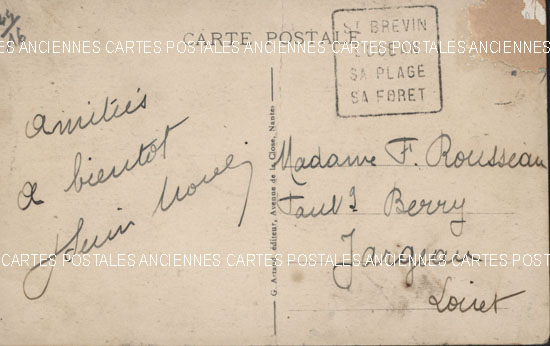 CARTE POSTALE
ST BREVIN
SA PLAGE
SA FORET
CARTES POSTALES ANCIENNES CARTES POSTALES ANCIENNES CARTES POSTALES ANCIENNES
amitiés
a bientot
G. Artaud, éditeur, Avenue de la Close, Nantes
Madame F. Rousseau
Berry
Jargeau
Loiret
CARTES POSTALES ANCIENNES CARTES POSTALES ANCIENNES CARTES POSTALES